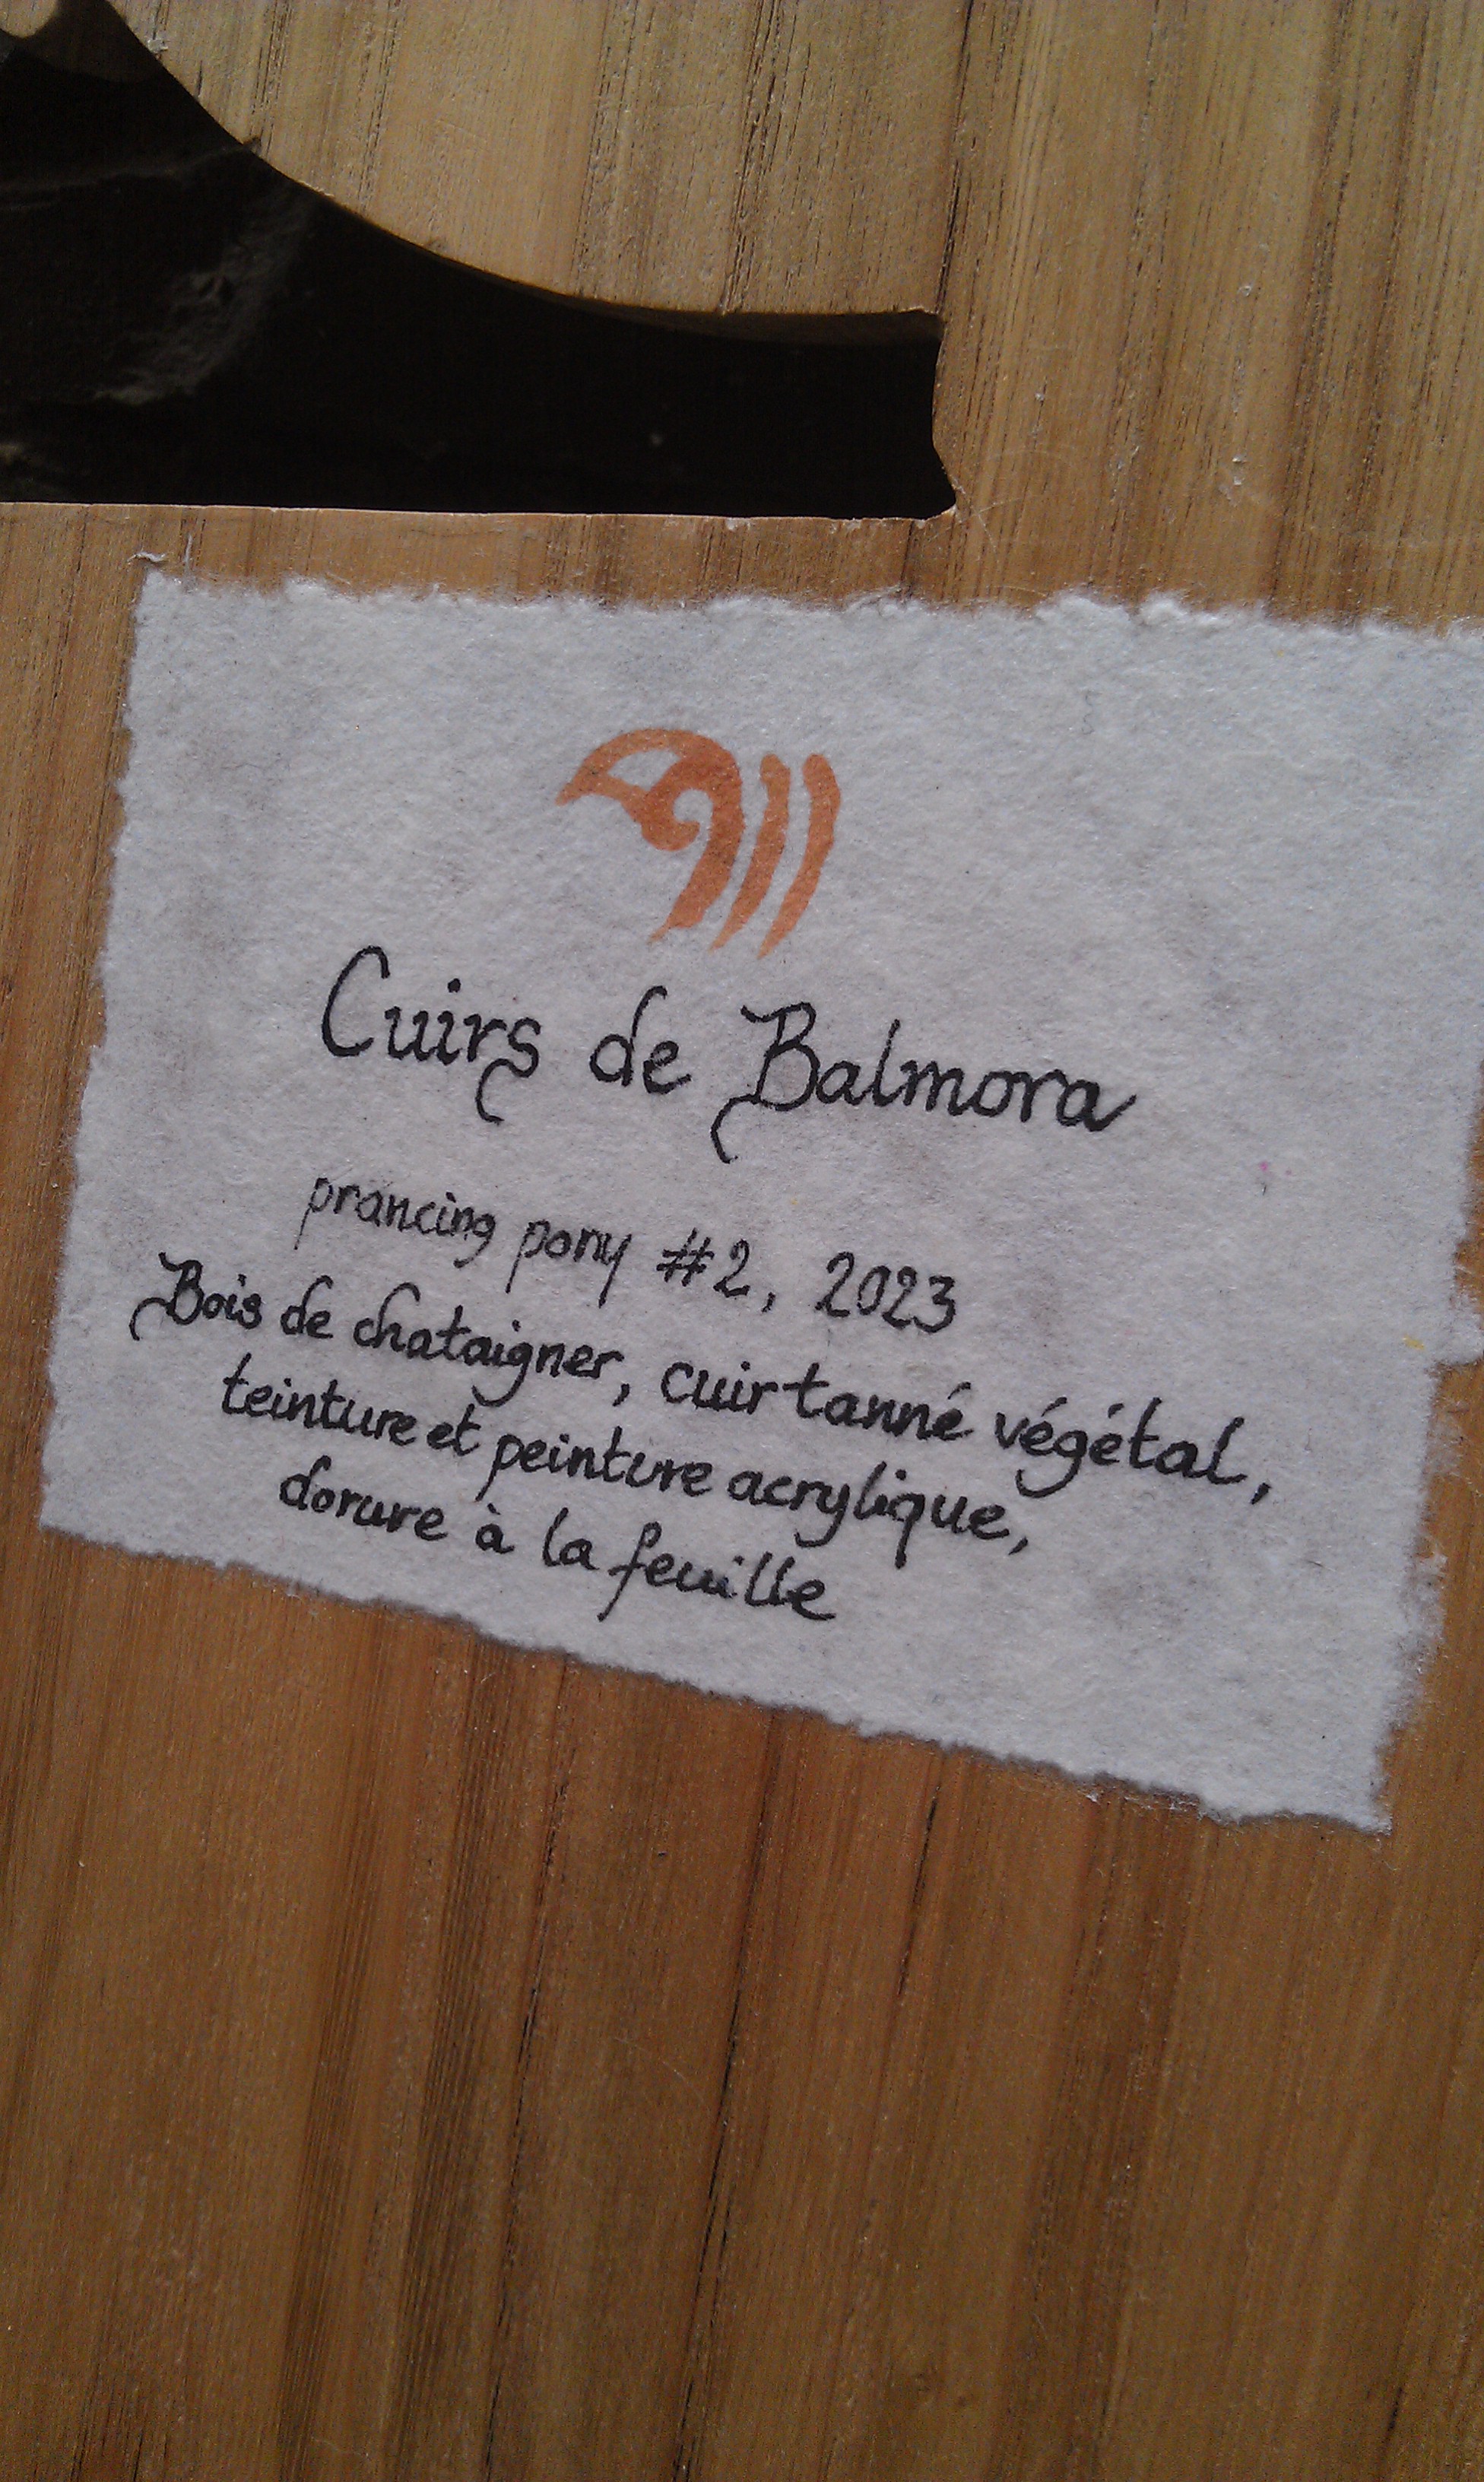 Cuirs de Balmora
prancing pony #2, 2023
Bois de chataigner, cuir tanné végétal,
teinture et peinture acrylique,
dorure à la feuille